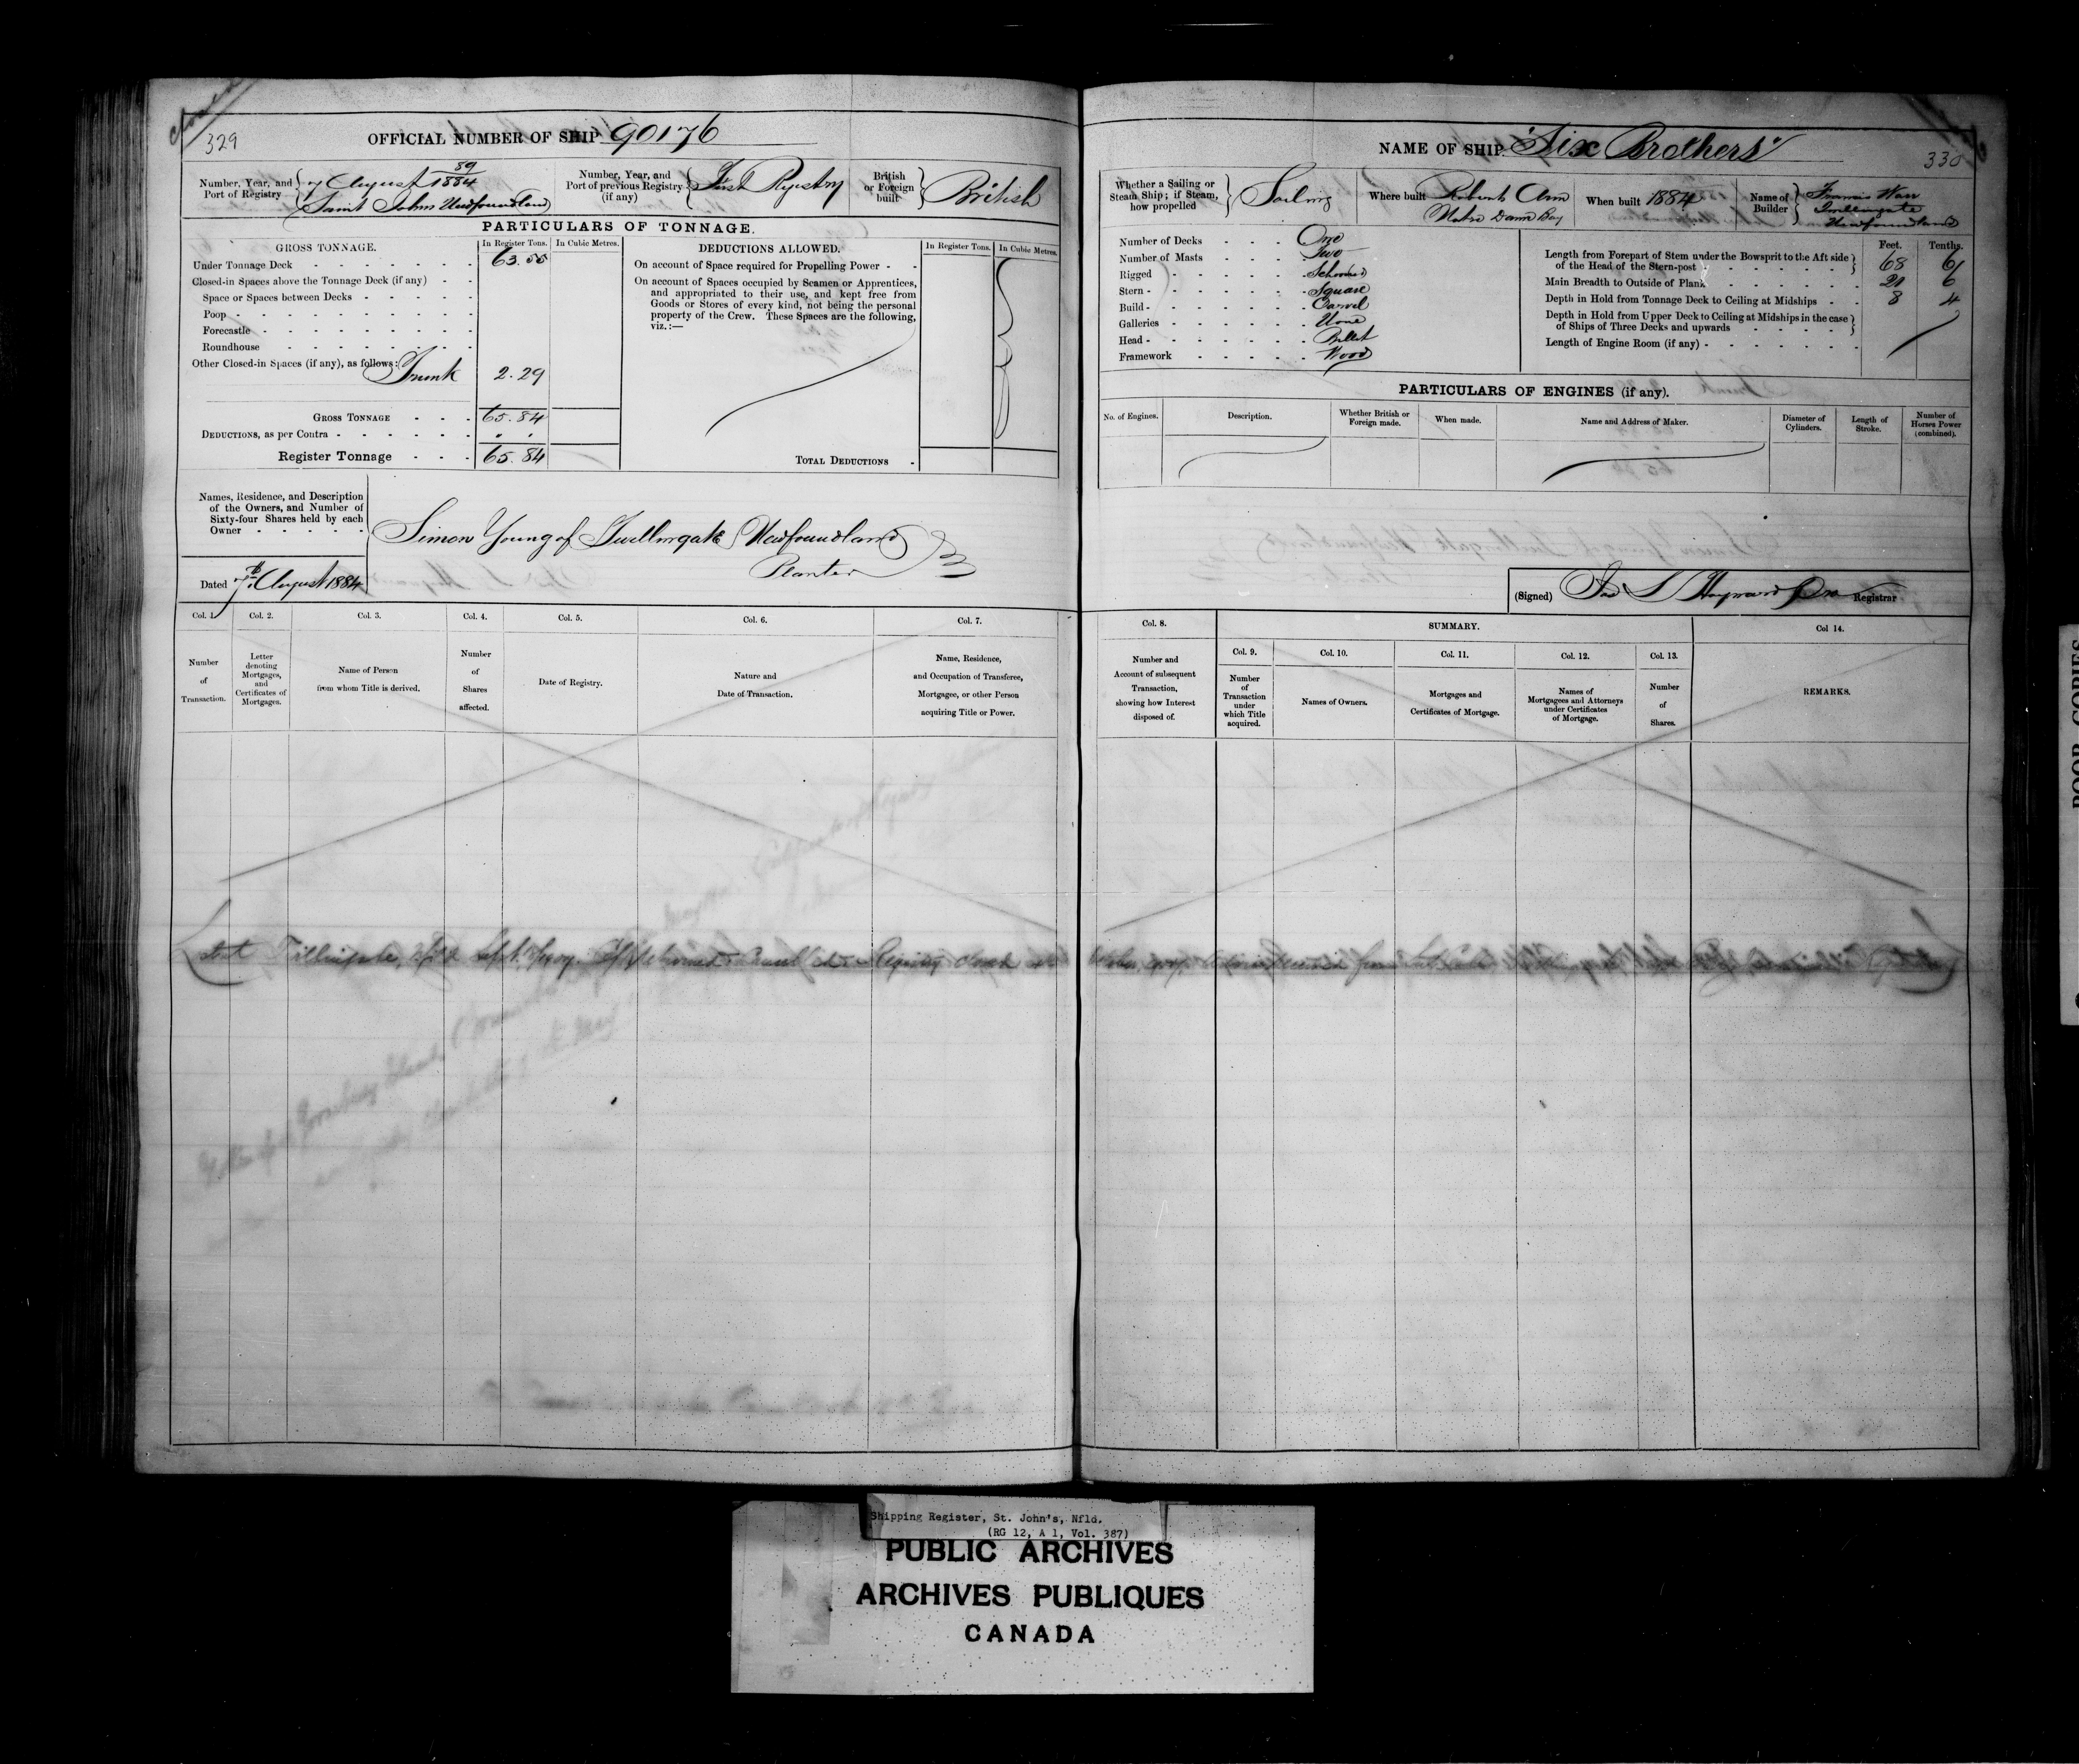 Closed
329
OFFICIAL NUMBER OF SHIP 90176
Number, Year, and Port of Registry 7 August 89/1884 Saint Johns Newfoundland
Number, Year, and Port of previous Registry (if any) First Registry
British or Foreign built British
PARTICULARS OF TONNAGE.
GROSS TONNAGE. In Register Tons. In Cubic Metres.
Under Tonnage Deck 63.55
Closed-in Spaces above the Tonnage Deck (if any)
Space or Spaces between Decks
Poop
Forecastle
Roundhouse
Other Closed-in Spaces (if any), as follows: Trunk 2.29
GROSS TONNAGE 65.84
DEDUCTIONS, as per Contra
Register Tonnage 65.84
DEDUCTIONS ALLOWED. In Register Tons. In Cubic Metres.
On account of Space required for Propelling Power
On account of Spaces occupied by Seamen or Apprentices,
and appropriated to their use, and kept free from
Goods or Stores of every kind, not being the personal
property of the Crew. These Spaces are the following,
viz.:—
TOTAL DEDUCTIONS
Names, Residence, and Description
of the Owners, and Number of
Sixty-four Shares held by each
Owner
Simon Young of Twillingate Newfoundland
Planter
Dated 7th August 1884
Col. 1. Col. 2. Col. 3. Col. 4. Col. 5. Col. 6. Col. 7.
Number of Transaction.
Letter denoting Mortgages, and Certificates of Mortgages.
Name of Person from whom Title is derived.
Number of Shares affected.
Date of Registry.
Nature and Date of Transaction.
Name, Residence, and Occupation of Transferee, Mortgagee, or other Person acquiring Title or Power.
NAME OF SHIP "Six Brothers"
330
Whether a Sailing or Steam Ship; if Steam, how propelled Sailing
Where built Roberts Arm Notre Dame Bay
When built 1884
Name of Builder Francis Warr Twillingate Newfoundland
Number of Decks One
Number of Masts Two
Rigged Schooner
Stern Square
Build Carvel
Galleries None
Head Billet
Framework Wood
Feet. Tenths.
Length from Forepart of Stem under the Bowsprit to the Aft side of the Head of the Stern-post 68 6
Main Breadth to Outside of Plank 21 6
Depth in Hold from Tonnage Deck to Ceiling at Midships 8 4
Depth in Hold from Upper Deck to Ceiling at Midships in the case of Ships of Three Decks and upwards
Length of Engine Room (if any)
PARTICULARS OF ENGINES (if any).
No. of Engines. Description. Whether British or Foreign made. When made. Name and Address of Maker. Diameter of Cylinders. Length of Stroke. Number of Horses Power (combined).
(Signed) Registrar
Col. 8. SUMMARY. Col 14.
Col. 9. Col. 10. Col. 11. Col. 12. Col. 13.
Number and Account of subsequent Transaction, showing how Interest disposed of.
Number of Transaction under which Title acquired.
Names of Owners.
Mortgages and Certificates of Mortgage.
Names of Mortgagees and Attorneys under Certificates of Mortgage.
Number of Shares.
REMARKS.
Lost Twillingate, Nfld
POOR COPIES
Shipping Register, St. John's, Nfld.
(RG 12, A 1, Vol. 387)
PUBLIC ARCHIVES
ARCHIVES PUBLIQUES
CANADA